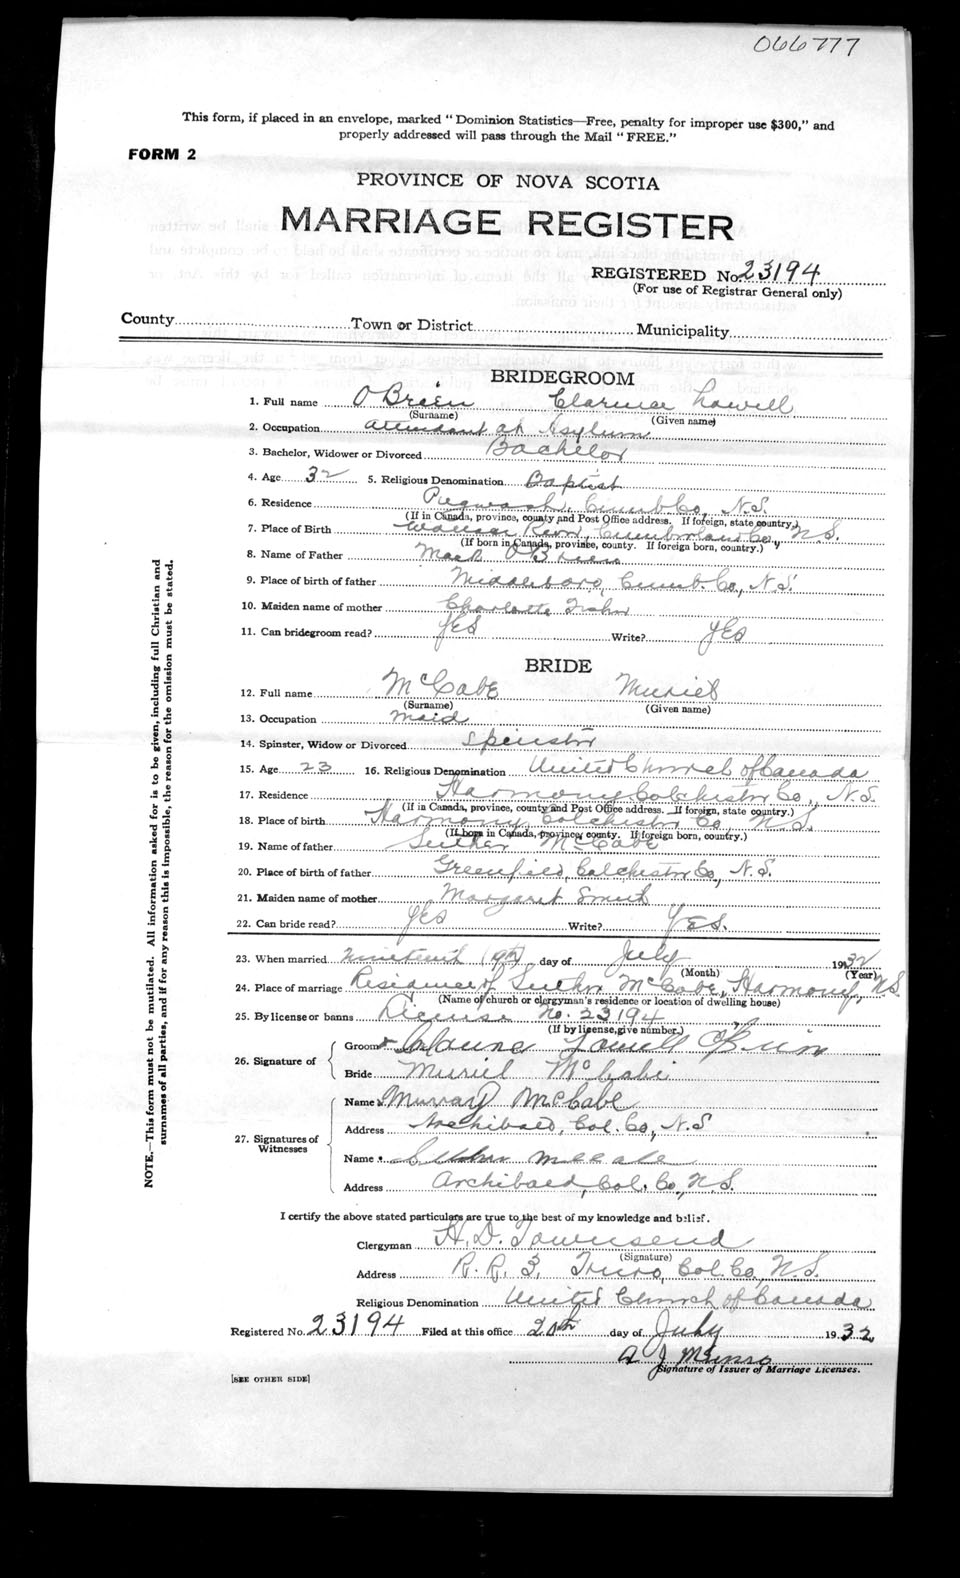 066777
This form, if placed in an envelope, marked "Dominion Statistics—Free, penalty for improper use $300," and
properly addressed will pass through the Mail "FREE."
FORM 2
PROVINCE OF NOVA SCOTIA
MARRIAGE REGISTER
REGISTERED No. 23194
(For use of Registrar General only)
County Town or District Municipality
BRIDEGROOM
1. Full name O'Brien Clarence Lowell
(Surname) (Given name)
2. Occupation Attendant at Asylum
3. Bachelor, Widower or Divorced Bachelor
4. Age 32 5. Religious Denomination Baptist
6. Residence Pugwash, Cumb Co, N.S.
(If in Canada, province, county and Post Office address. If foreign, state country.)
7. Place of Birth Wallace River, Cumberland Co., N.S.
(If born in Canada, province, county. If foreign born, country.)
8. Name of Father Mack O'Brien
9. Place of birth of father Middleboro, Cumb Co., N.S.
10. Maiden name of mother Charlotte
11. Can bridegroom read? Yes Write? Yes
BRIDE
12. Full name McCabe Muriel
(Surname) (Given name)
13. Occupation Maid
14. Spinster, Widow or Divorced Spinster
15. Age 23 16. Religious Denomination United Church of Canada
17. Residence Harmony Colchester Co., N.S.
(If in Canada, province, county and Post Office address. If foreign, state country.)
18. Place of birth Harmony Colchester Co N.S.
(If born in Canada, province, county. If foreign born, country.)
19. Name of father Luther McCabe
20. Place of birth of father Greenfield, Colchester Co., N.S.
21. Maiden name of mother Margaret Smith
22. Can bride read? Yes Write? Yes.
23. When married Nineteenth (19th) day of July 1932
(Month) (Year)
24. Place of marriage Residence of Luther McCabe, Harmony, N.S
(Name of church or clergyman's residence or location of dwelling house)
25. By license or banns License No. 23194
(If by license, give number.)
26. Signature of Groom Clarence Lowell O'Brien
Bride Muriel McCabe
27. Signatures of Witnesses Name Murray McCabe
Address Archibald, Col. Co., N.S
Name Luther McCabe
Address Archibald, Col. Co., N.S.
I certify the above stated particulars are true to the best of my knowledge and belief.
Clergyman H. D. Townsend
(Signature)
Address R.R. 3, Truro, Col. Co., N.S.
Religious Denomination United Church of Canada
Registered No. 23194 Filed at this office 20th day of July 1932
A J Munro
Signature of Issuer of Marriage Licenses.
[SEE OTHER SIDE]
NOTE.—This form must not be mutilated. All information asked for is to be given, including full Christian and
surnames of all parties, and if for any reason this is impossible, the reason for the omission must be stated.